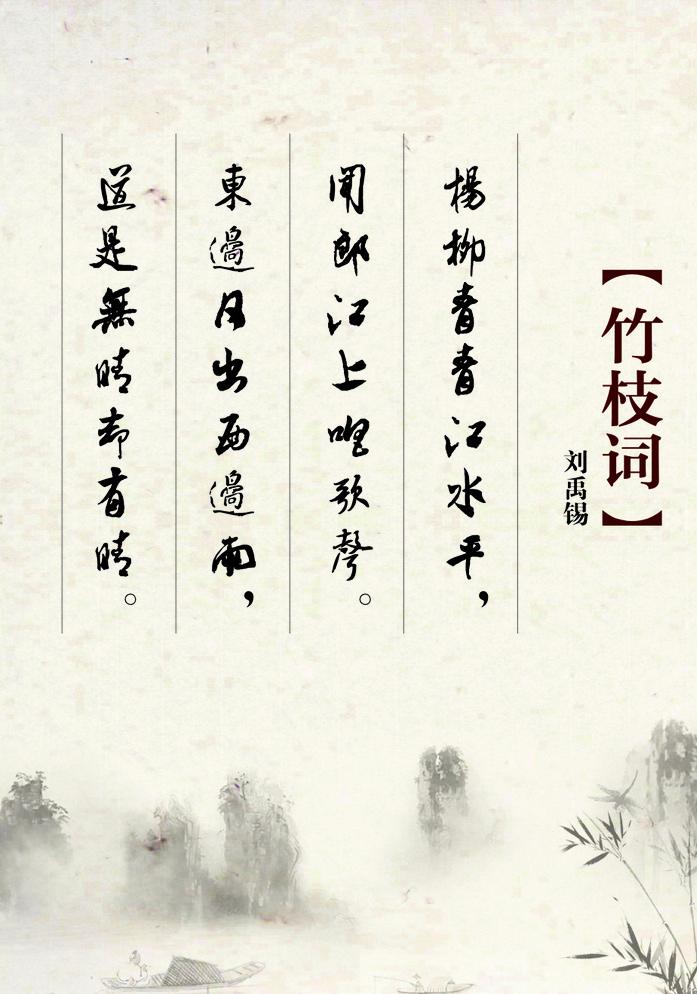 【竹枝词】
刘禹锡
楊柳青青江水平，
聞郎江上唱歌聲。
東邊日出西邊雨，
道是無晴却有晴。